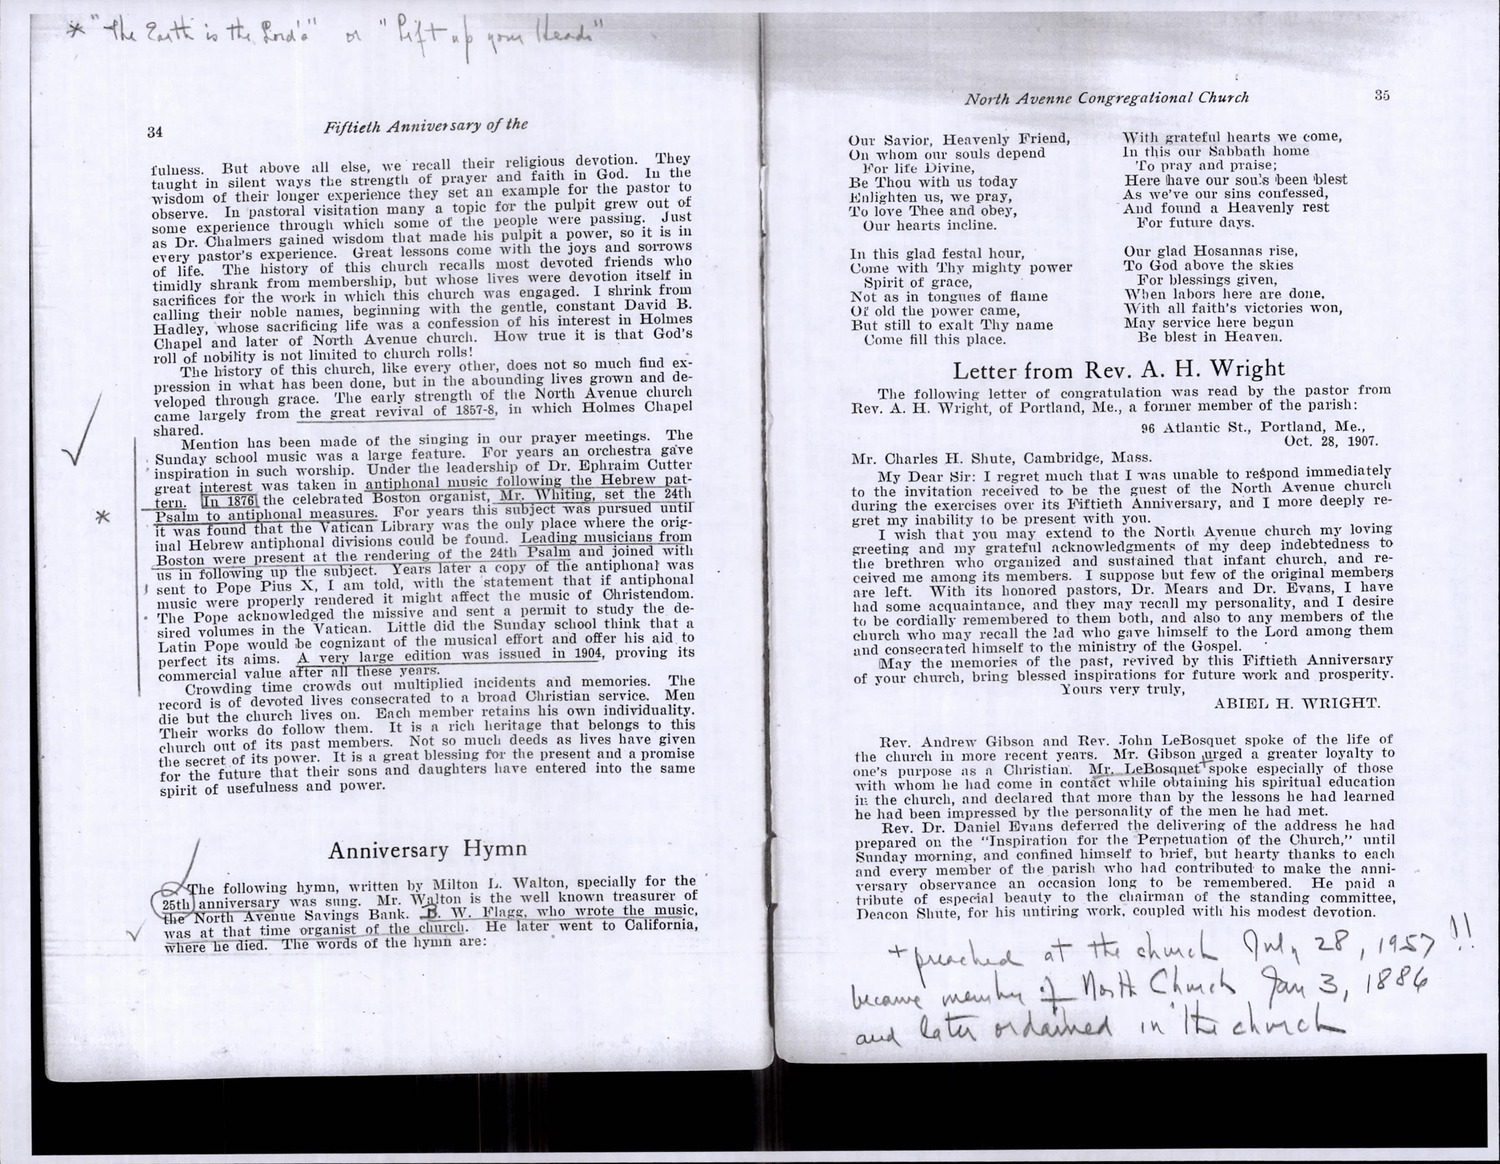 * "The Earth is the Lord's" or "Lift up your Heads"
34
Fiftieth Anniversary of the
fulness. But above all else, we recall their religious devotion. They
taught in silent ways the strength of prayer and faith in God. In the
wisdom of their longer experience they set an example for the pastor to
observe. In pastoral visitation many a topic for the pulpit grew out of
some experience through which some of the people were passing. Just
as Dr. Chalmers gained wisdom that made his pulpit a power, so it is in
every pastor's experience. Great lessons come with the joys and sorrows
of life. The history of this church recalls most devoted friends who
timidly shrank from membership, but whose lives were devotion itself in
sacrifices for the work in which this church was engaged. I shrink from
calling their noble names, beginning with the gentle, constant David B.
Hadley, whose sacrificing life was a confession of his interest in Holmes
Chapel and later of North Avenue church. How true it is that God's
roll of nobility is not limited to church rolls!
The history of this church, like every other, does not so much find ex-
pression in what has been done, but in the abounding lives grown and de-
veloped through grace. The early strength of the North Avenue church
came largely from the great revival of 1857-8, in which Holmes Chapel
shared.
Mention has been made of the singing in our prayer meetings. The
Sunday school music was a large feature. For years an orchestra gave
inspiration in such worship. Under the leadership of Dr. Ephraim Cutter
great interest was taken in antiphonal music following the Hebrew pat-
tern. In 1876 the celebrated Boston organist, Mr. Whiting, set the 24th
* Psalm to antiphonal measures. For years this subject was pursued until
it was found that the Vatican Library was the only place where the orig-
inal Hebrew antiphonal divisions could be found. Leading musicians from
Boston were present at the rendering of the 24th Psalm and joined with
us in following up the subject. Years later a copy of the antiphonal was
sent to Pope Pius X, I am told, with the statement that if antiphonal
music were properly rendered it might affect the music of Christendom.
The Pope acknowledged the missive and sent a permit to study the de-
sired volumes in the Vatican. Little did the Sunday school think that a
Latin Pope would be cognizant of the musical effort and offer his aid to
perfect its aims. A very large edition was issued in 1904, proving its
commercial value after all these years.
Crowding time crowds out multiplied incidents and memories. The
record is of devoted lives consecrated to a broad Christian service. Men
die but the church lives on. Each member retains his own individuality.
Their works do follow them. It is a rich heritage that belongs to this
church out of its past members. Not so much deeds as lives have given
the secret of its power. It is a great blessing for the present and a promise
for the future that their sons and daughters have entered into the same
spirit of usefulness and power.
Anniversary Hymn
The following hymn, written by Milton L. Walton, specially for the
25th anniversary was sung. Mr. Walton is the well known treasurer of
the North Avenue Savings Bank. B. W. Flagg, who wrote the music,
was at that time organist of the church. He later went to California,
where he died. The words of the hymn are:
North Avenne Congregational Church
35
Our Savior, Heavenly Friend,
On whom our souls depend
For life Divine,
Be Thou with us today
Enlighten us, we pray,
To love Thee and obey,
Our hearts incline.
In this glad festal hour,
Come with Thy mighty power
Spirit of grace,
Not as in tongues of flame
Of old the power came,
But still to exalt Thy name
Come fill this place.
With grateful hearts we come,
In this our Sabbath home
To pray and praise;
Here have our souls been blest
As we've our sins confessed,
And found a Heavenly rest
For future days.
Our glad Hosannas rise,
To God above the skies
For blessings given,
When labors here are done,
With all faith's victories won,
May service here begun
Be blest in Heaven.
Letter from Rev. A. H. Wright
The following letter of congratulation was read by the pastor from
Rev. A. H. Wright, of Portland, Me., a former member of the parish:
96 Atlantic St., Portland, Me.,
Oct. 28, 1907.
Mr. Charles H. Shute, Cambridge, Mass.
My Dear Sir: I regret much that I was unable to respond immediately
to the invitation received to be the guest of the North Avenue church
during the exercises over its Fiftieth Anniversary, and I more deeply re-
gret my inability to be present with you.
I wish that you may extend to the North Avenue church my loving
greeting and my grateful acknowledgments of my deep indebtedness to
the brethren who organized and sustained that infant church, and re-
ceived me among its members. I suppose but few of the original members
are left. With its honored pastors, Dr. Mears and Dr. Evans, I have
had some acquaintance, and they may recall my personality, and I desire
to be cordially remembered to them both, and also to any members of the
church who may recall the lad who gave himself to the Lord among them
and consecrated himself to the ministry of the Gospel.
May the memories of the past, revived by this Fiftieth Anniversary
of your church, bring blessed inspirations for future work and prosperity.
Yours very truly,
ABIEL H. WRIGHT.
Rev. Andrew Gibson and Rev. John LeBosquet spoke of the life of
the church in more recent years. Mr. Gibson urged a greater loyalty to
one's purpose as a Christian. Mr. LeBosquet + spoke especially of those
with whom he had come in contact while obtaining his spiritual education
in the church, and declared that more than by the lessons he had learned
he had been impressed by the personality of the men he had met.
Rev. Dr. Daniel Evans deferred the delivering of the address he had
prepared on the "Inspiration for the Perpetuation of the Church," until
Sunday morning, and confined himself to brief, but hearty thanks to each
and every member of the parish who had contributed to make the anni-
versary observance an occasion long to be remembered. He paid a
tribute of especial beauty to the chairman of the standing committee,
Deacon Shute, for his untiring work, coupled with his modest devotion.
+ preached at the church July 28, 1957 !!
became member of North Church Jan 3, 1886
and later ordained in the church